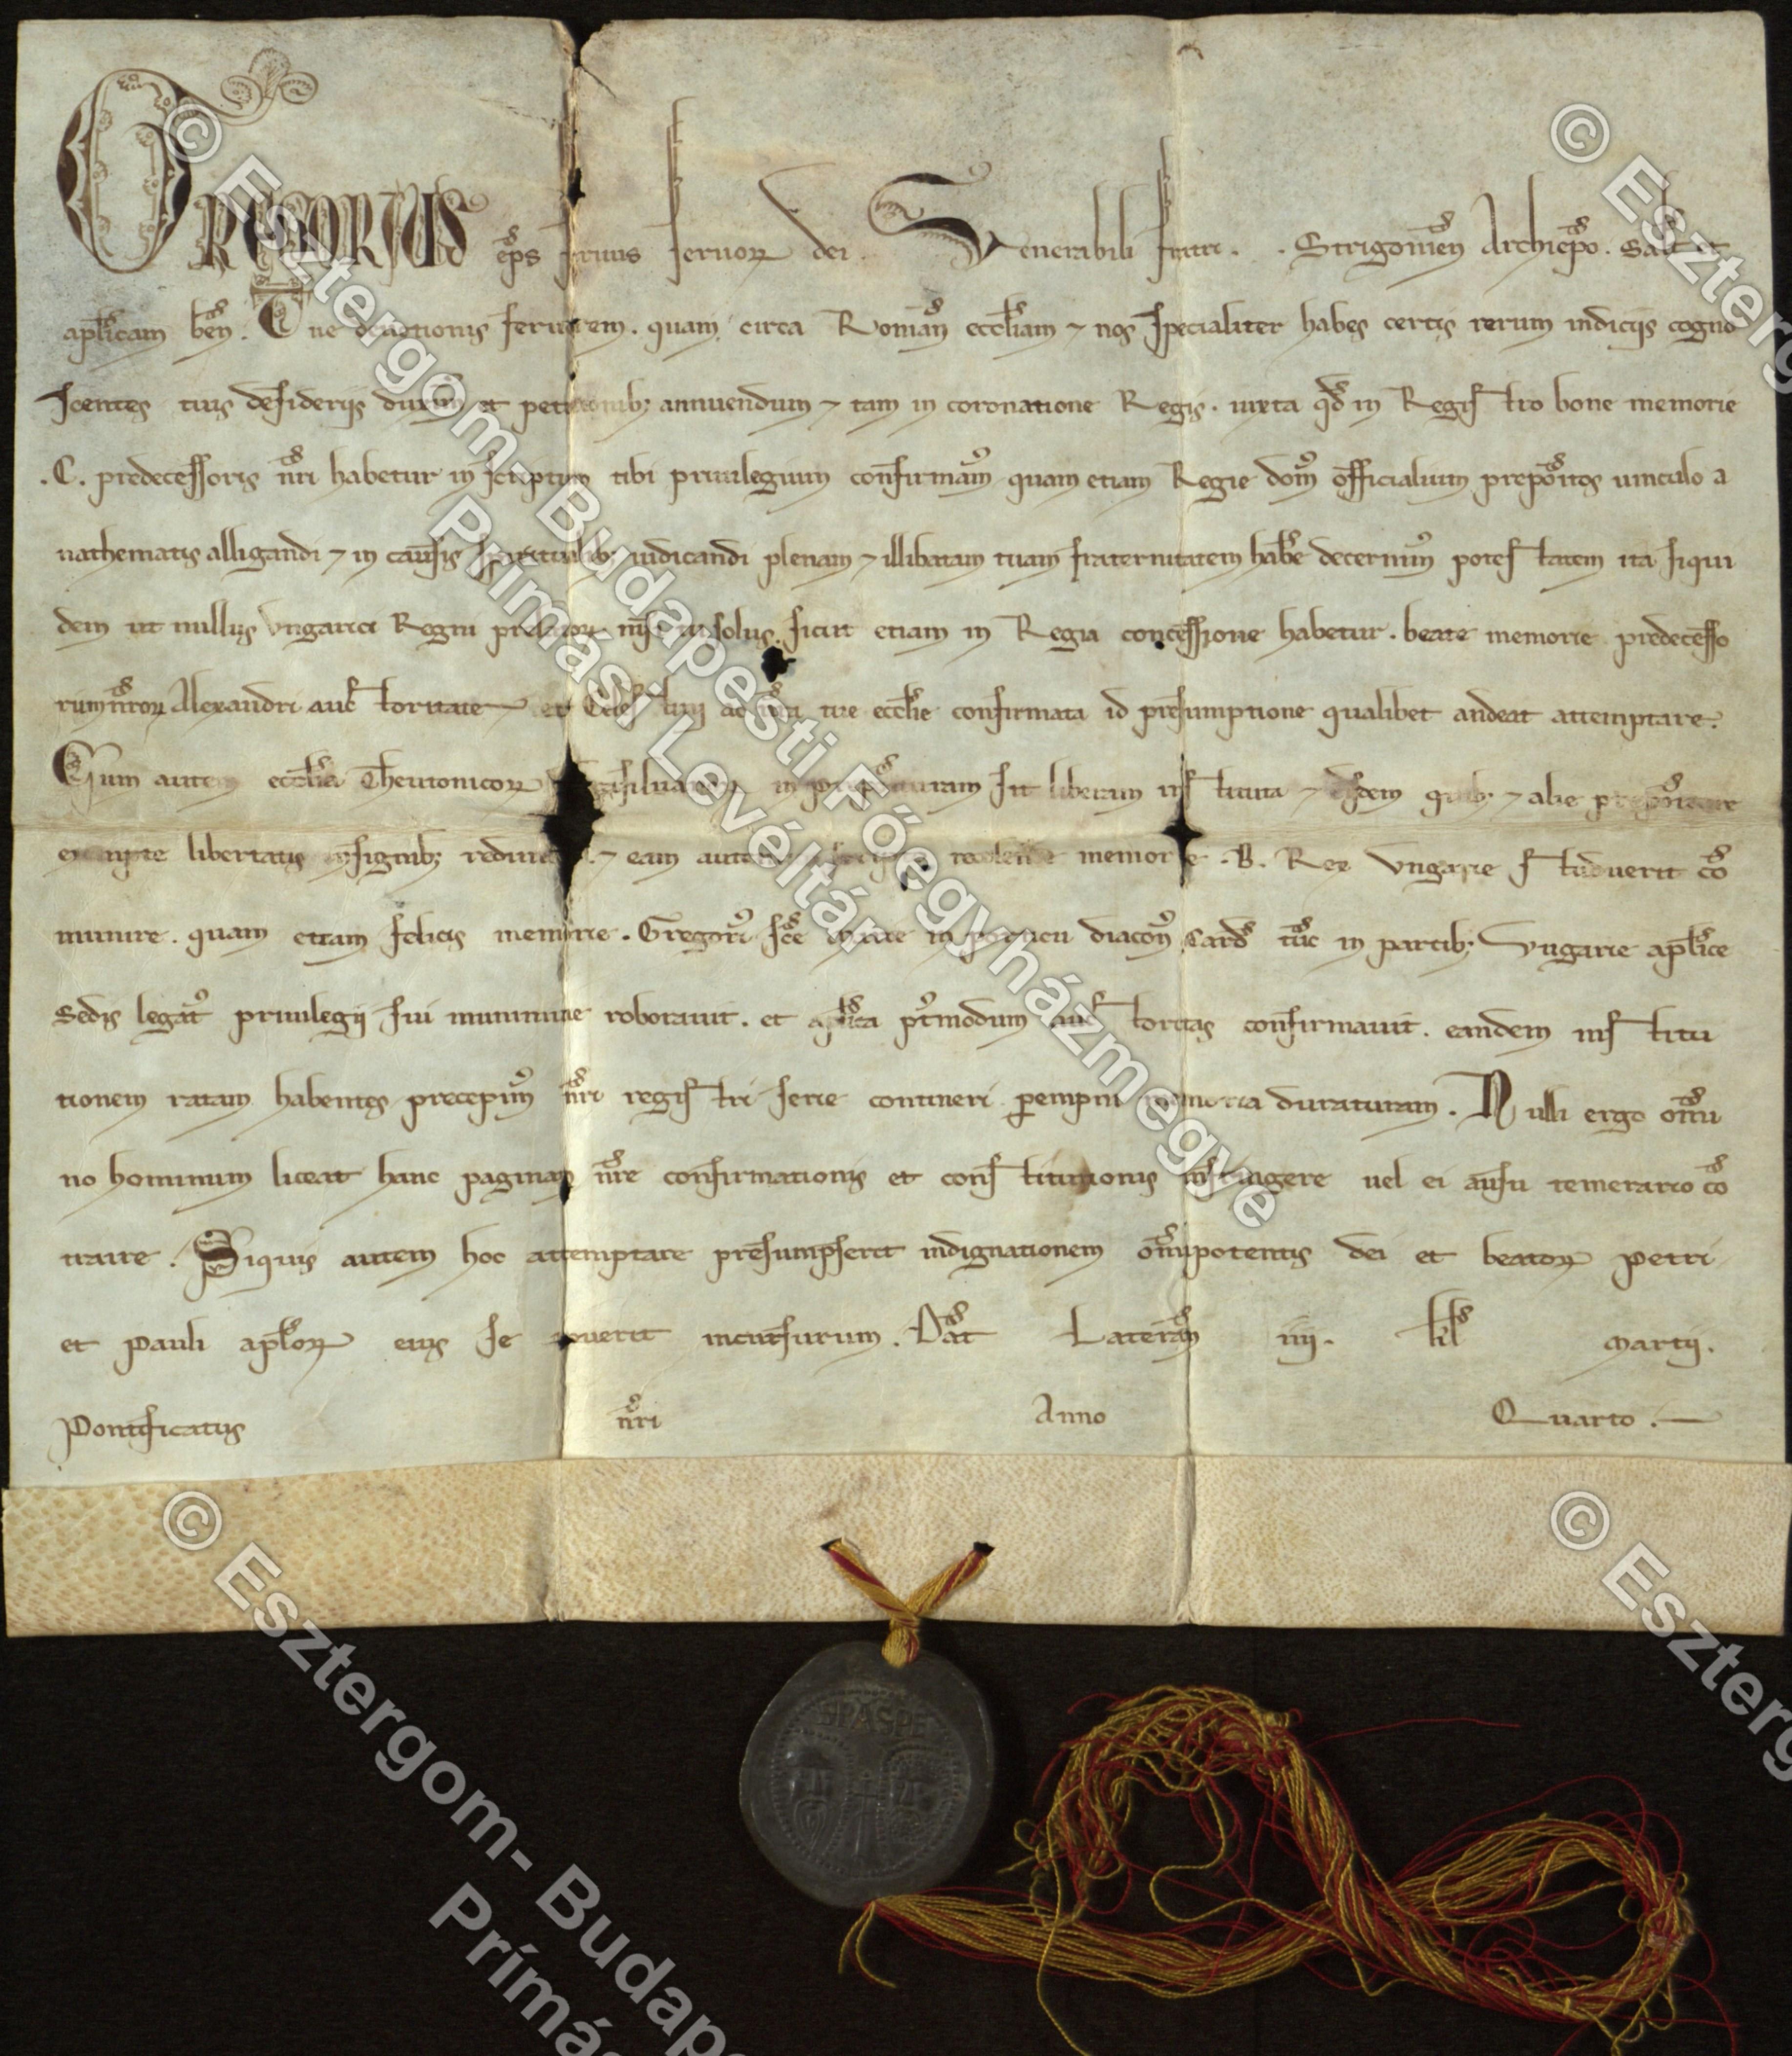 GREGORIUS ep̄s seruus seruoꝝ dei. Venerabili fratri. . Strigonien̄ Archiep̄o. Sal̄t et
apl̄icam ben̄. Tue deuotionis feruorem. quam circa Roman̄ eccl̄iam ⁊ nos specialiter habes certis rerum indiciis cogno
scentes tuis desideriis duximꝰ et petitionib; annuendum ⁊ tam in coronatione Regis. iuxta qd̄ in Registro bone memorie
.C. predecessoris nr̄i habetur inscriptum tibi priuilegium confirmamꝰ quam etiam Regie domꝰ officialium prepōitos uinculo a
nathematis alligandi ⁊ in causis spiritualib; iudicandi plenam ⁊ illibatam tuam fraternitatem habere decernimꝰ potestatem ita siqui
dem ut nullus Vngarici Regni prelatoꝝ nisi tu solus. sicut etiam in Regia concessione habetur. beate memorie predecesso
rum nr̄oꝝ Alexandri auctoritate et Celestini tue eccl̄ie confirmata id presumptione qualibet audeat attemptare.
Cum autem eccl̄ia Theutonicoꝝ in preposituram sit liberam instituta ⁊ eisdem quib; ⁊ alie
exempte libertatis insignib; redimita ⁊ eam recolende memorie .B. Rex Vngarie studuerit cō
munire. quam etiam felicis memorie. Gregoriꝰ sc̄e Marie in porticu diaconꝰ Card̄ tūc in partib; Vngarie apl̄ice
Sedis legatꝰ priuilegii sui munimine roborauit. et apl̄ica pꝰtmodum auctoritas confirmauit. eandem institu
tionem ratam habentes precepimꝰ nr̄i registri serie contineri perempni memoria duraturam. Nulli ergo om̄i
no hominum liceat hanc paginam nr̄e confirmationis et constitutionis infringere uel ei ausu temerario cō
traire. Siquis autem hoc attemptare presumpserit indignationem om̄ipotentis dei et beatoꝝ Petri
et Pauli apl̄oꝝ eius se nouerit incursurum. Dat̄ Lateran̄ iiij. kl̄ Martij.
Pontificatus nr̄i Anno Quarto.
SPASPE
© Esztergom-Budapesti Főegyházmegye
Prímási Levéltár
© Eszterg
© Esztergom-Budap
Prímás
© Eszterg